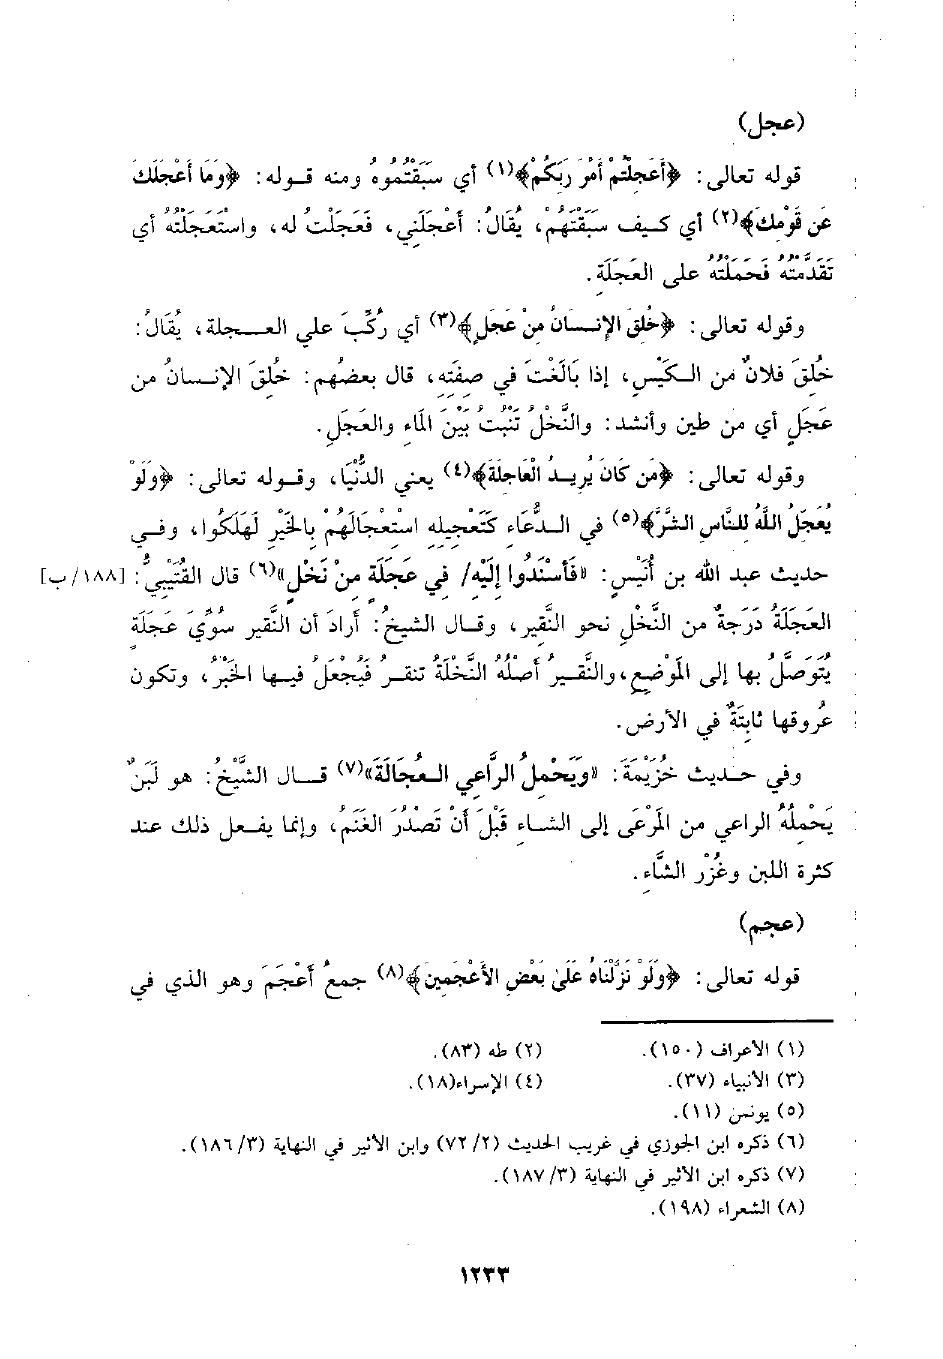 (عجل)
قوله تعالى: ﴿أَعَجِلْتُمْ أَمْرَ رَبِّكُمْ﴾(١) أي سَبَقْتُمُوهُ ومنه قوله: ﴿وَمَا أَعْجَلَكَ
عَن قَوْمِكَ﴾(٢) أي كيف سَبَقْتَهُمْ، يُقَالُ: أَعْجَلَني، فَعَجَلْتُ له، واستَعجَلْتُهُ أي
تَقَدَّمْتُهُ فَحَمَلْتُهُ على العَجَلَةِ.
وقوله تعالى: ﴿خُلِقَ الإِنسَانُ مِنْ عَجَلٍ﴾(٣) أي رُكِّبَ على العجلة، يُقَالُ:
خُلِقَ فلانٌ من الكَيْسِ، إذا بَالَغْتَ في صِفَتِهِ، قال بعضُهم: خُلِقَ الإنسانُ من
عَجَلٍ أي من طين وأنشد: والنَّخْلُ تَنْبُتُ بَيْنَ المَاءِ والعَجَلِ.
وقوله تعالى: ﴿مَن كَانَ يُرِيدُ الْعَاجِلَةَ﴾(٤) يعني الدُّنْيَا، وقوله تعالى: ﴿وَلَوْ
يُعَجِّلُ اللَّهُ لِلنَّاسِ الشَّرَّ﴾(٥) في الدُّعَاءِ كَتَعْجِيلِهِ اسْتِعْجَالَهُمْ بِالخَيْرِ لَهَلَكُوا، وفي
حديث عبد الله بن أُنَيْسٍ: «فَأَسْنَدُوا إِلَيْهِ/ في عَجَلَةٍ مِنْ نَخْلٍ»(٦) قال القُتَيْبِيُّ: [١٨٨/ب]
العَجَلَةُ دَرَجَةٌ من النَّخْلِ نحو النَّقِيرِ، وقال الشيخُ: أرادَ أن النَّقير سُوِّيَ عَجَلَةً
يُتَوَصَّلُ بها إلى المَوْضِعِ، والنَّقيرُ أصْلُهُ النَّخْلَةُ تنقرُ فَيُجْعَلُ فيها الخَبْرُ، وتكون
عُروقها ثابتَةٌ في الأرضِ.
وفي حديث خُزَيْمَةَ: «وَيَحْمِلُ الرَّاعِي العُجَالَةَ»(٧) قال الشَّيْخُ: هو لَبَنٌ
يَحْمِلُهُ الراعي من المَرْعَى إلى الشاء قَبْلَ أَنْ تَصْدُرَ الغَنَمُ، وإنما يفعل ذلك عند
كثرة اللبن وغُزْرِ الشَّاءِ.
(عجم)
قوله تعالى: ﴿وَلَوْ نَزَّلْنَاهُ عَلَىٰ بَعْضِ الأَعْجَمِينَ﴾(٨) جمعُ أَعْجَمَ وهو الذي في
(١) الأعراف (١٥٠). (٢) طه (٨٣).
(٣) الأنبياء (٣٧). (٤) الإسراء(١٨).
(٥) يونس (١١).
(٦) ذكره ابن الجوزي في غريب الحديث (٢/ ٧٢) وابن الأثير في النهاية (٣/ ١٨٦).
(٧) ذكره ابن الأثير في النهاية (٣/ ١٨٧).
(٨) الشعراء (١٩٨).
١٢٣٣